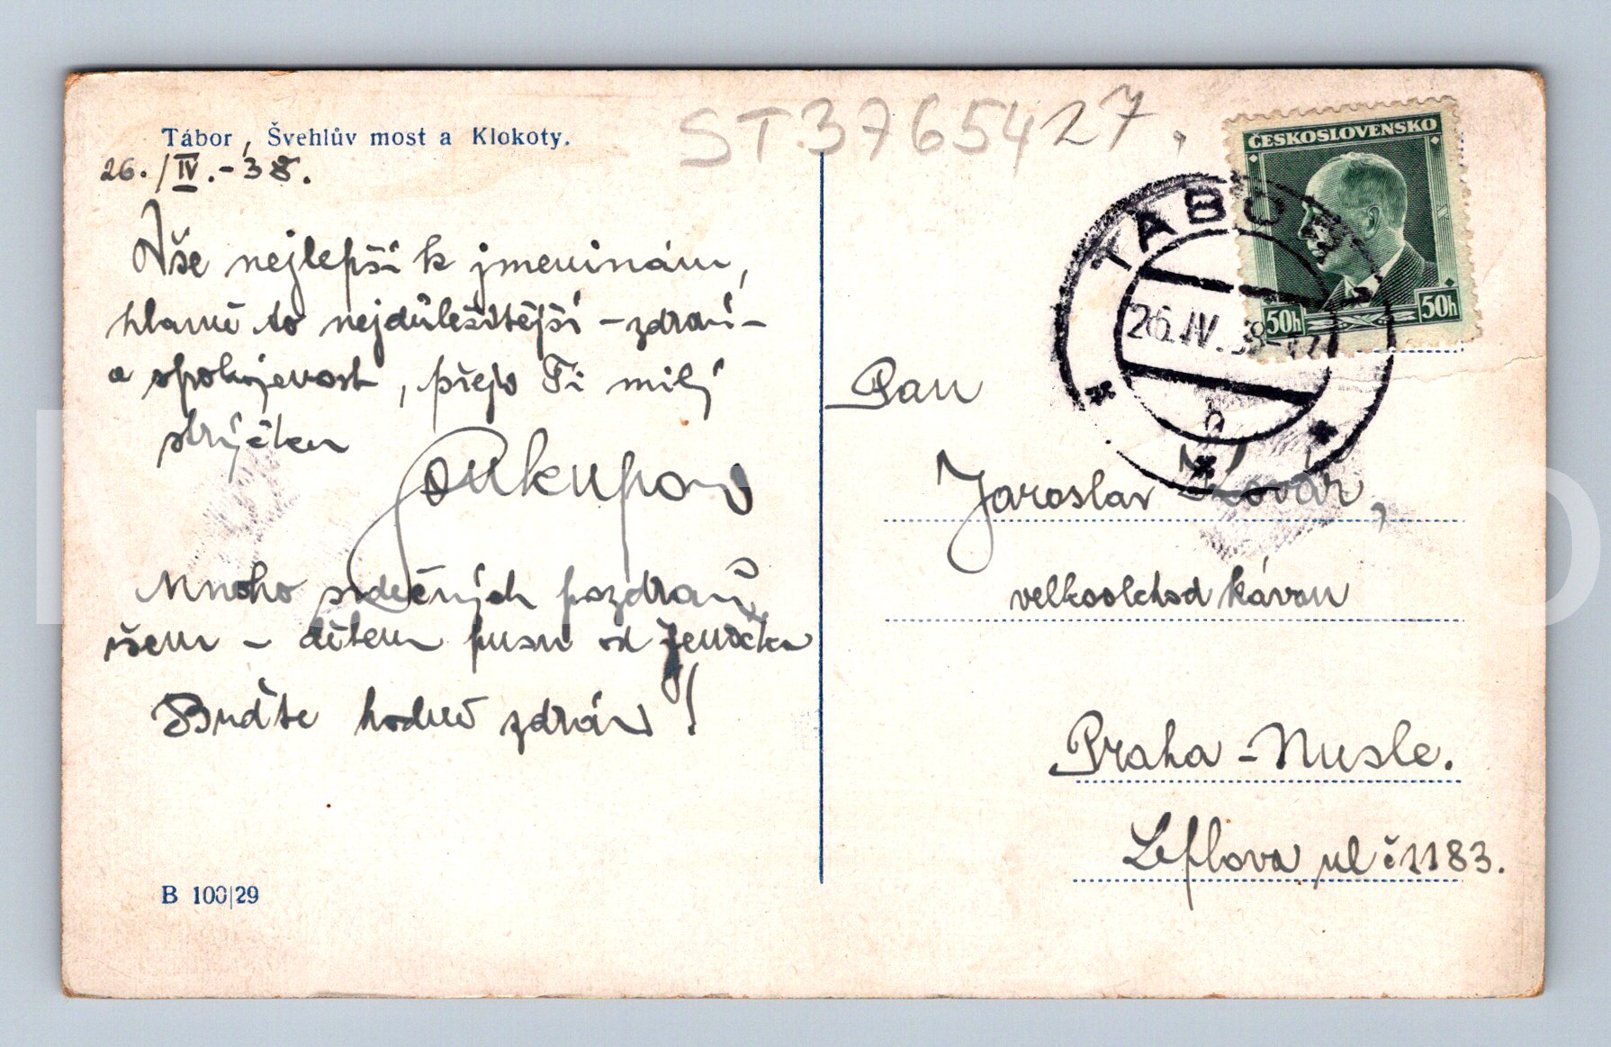 Tábor, Švehlův most a Klokoty.
26./IV.-38.
Vše nejlepší k jmeninám,
hlavně to nejdůležitější - zdraví -
a spokojenost, přeje Ti milý
strýčku
Soukupova
Mnoho srdečných pozdravů
všem - dětem pusu od Jeníčka
Buďte hodně zdrávi!
B 100|29
ST3765427.
ČESKOSLOVENSKO
50h 50h
TÁBOR
26.IV.38
Pan
Jaroslav Kovář,
velkoobchod kávou
Praha - Nusle.
Leflova ul č 1183.